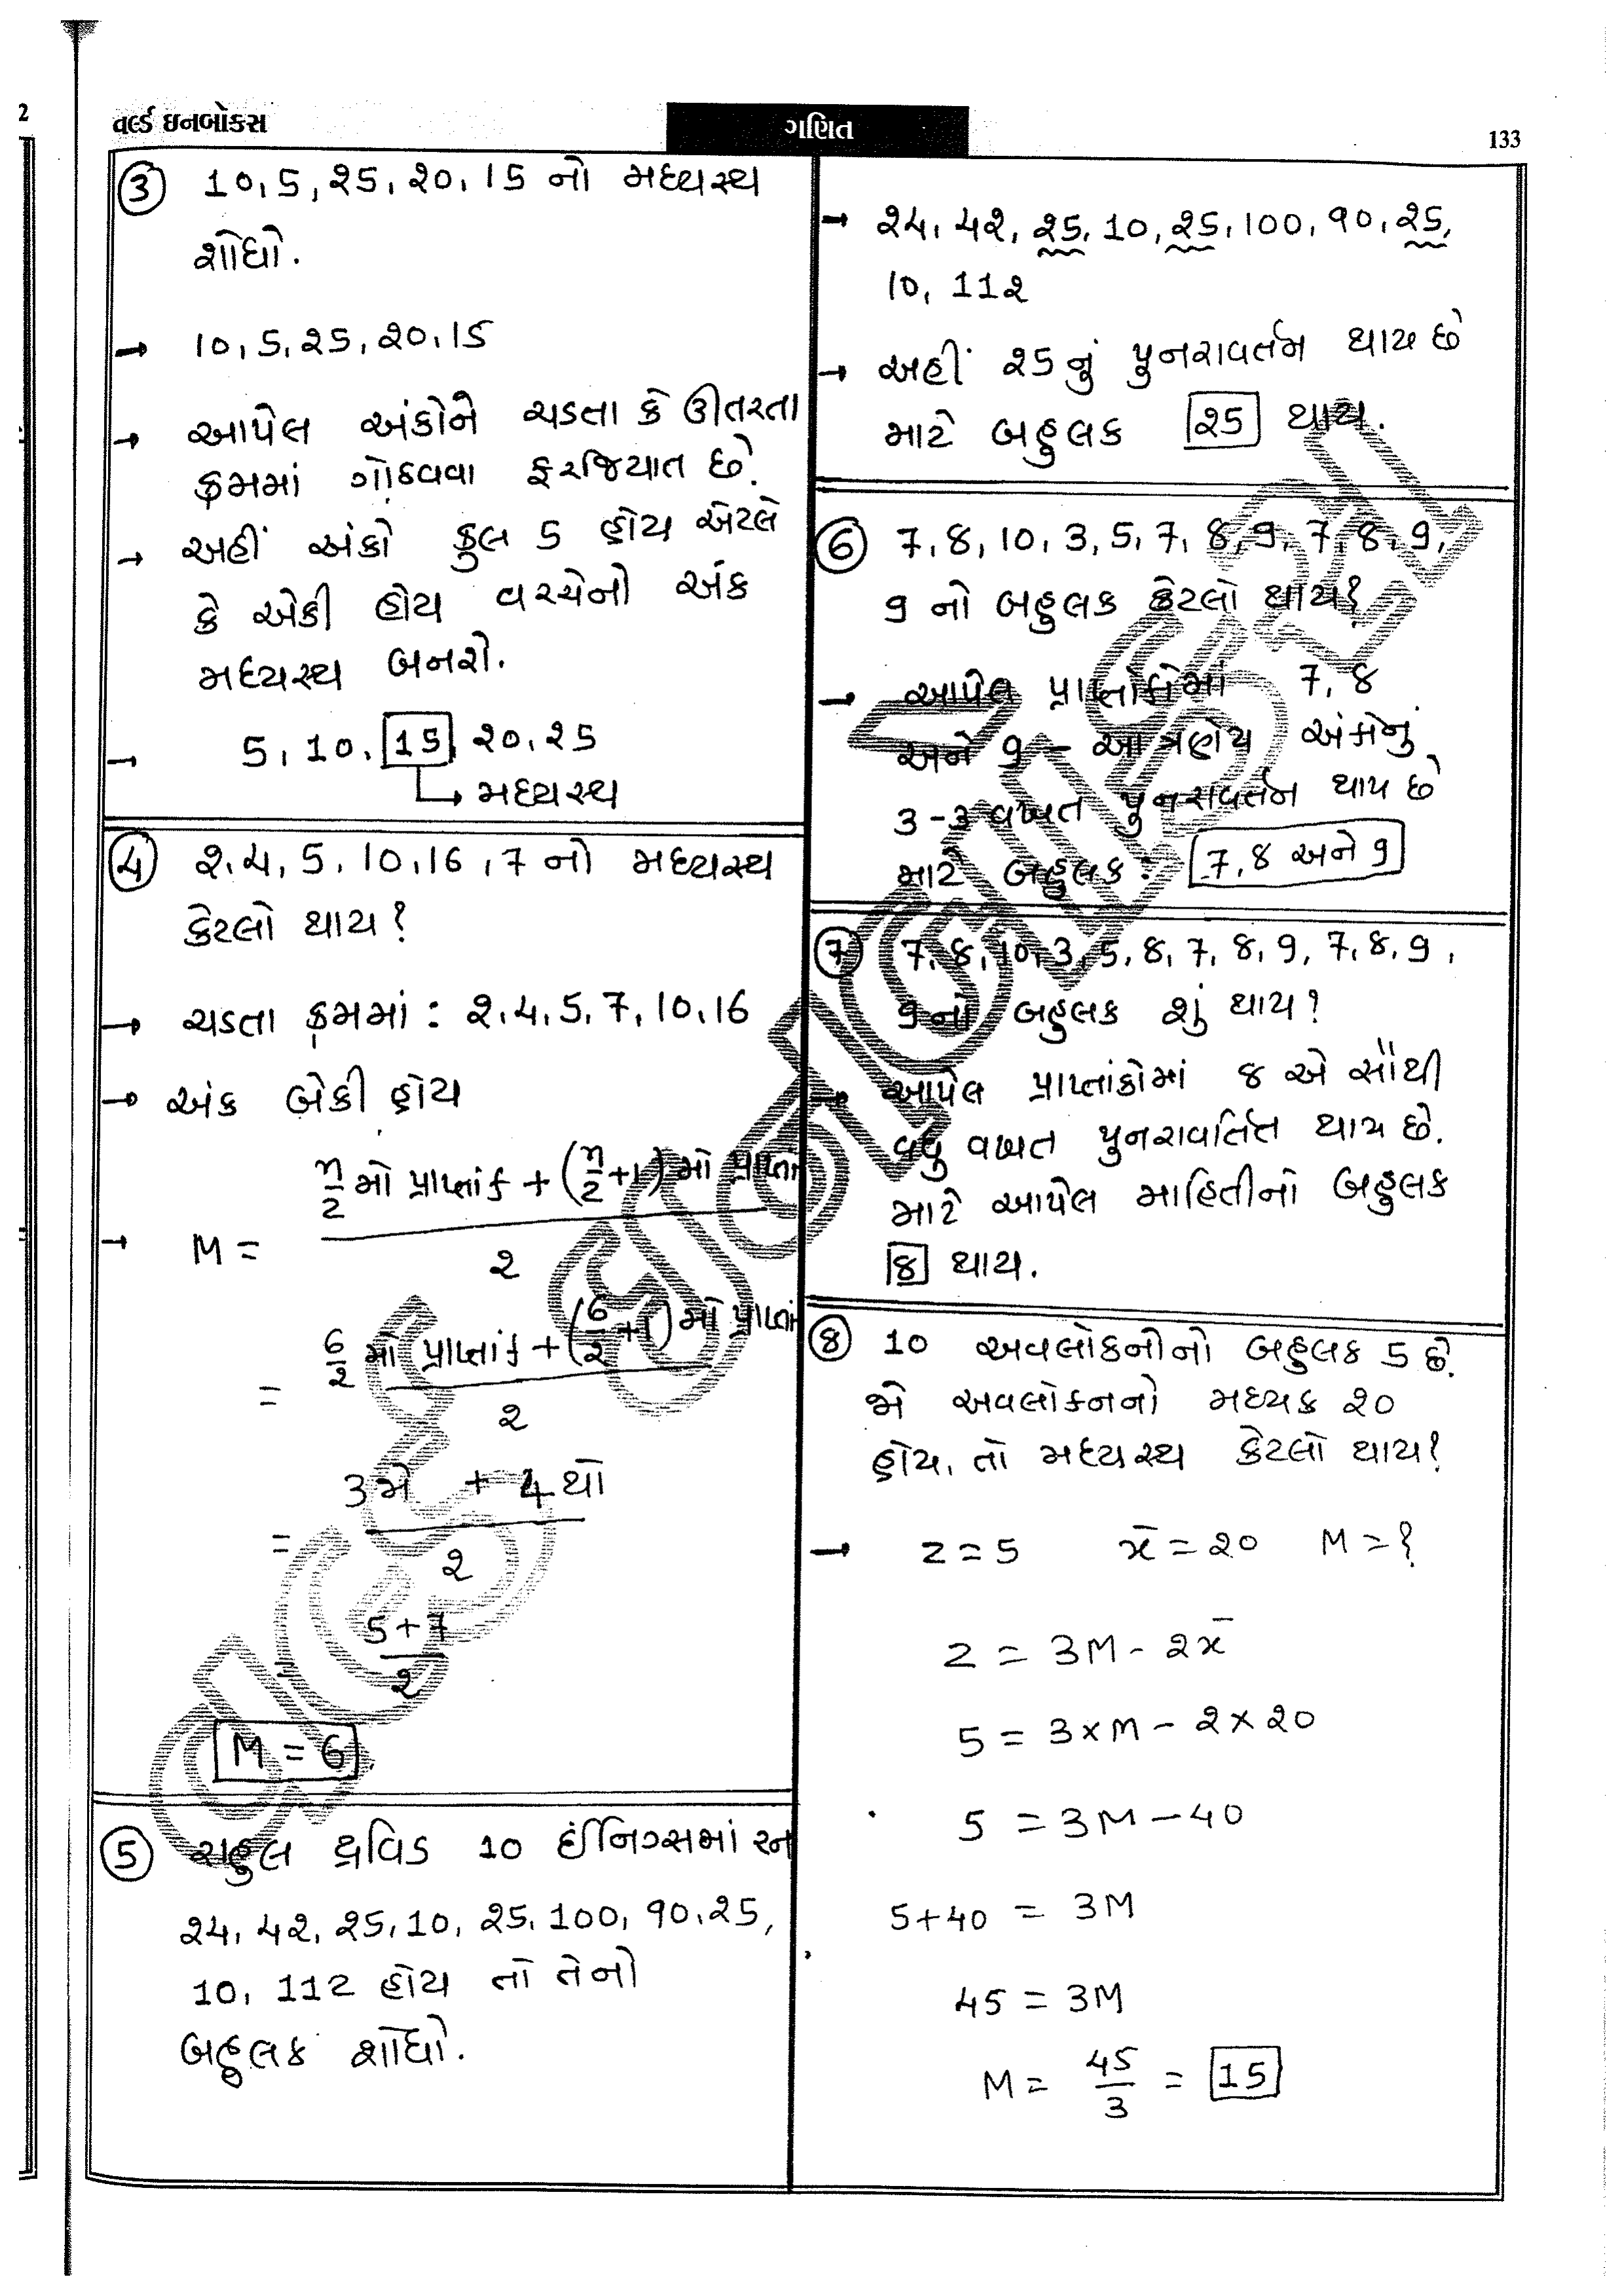 2
વર્લ્ડ ઇનબોકસ
ગણિત
133
③ 10, 5, ૨5, ૨0, 15 નો મધ્યસ્થ
શોધો.
→ 10, 5, ૨5, ૨0, 15
→ આપેલ અંકોને ચડતા કે ઊતરતા
ક્રમમાં ગોઠવવા ફરજિયાત છે.
→ અહીં અંકો કુલ 5 હોય એટલે
કે એકી હોય વચ્ચેનો અંક
મધ્યસ્થ બનશે.
→ 5, 10, 15, ૨0, ૨5
↳ મધ્યસ્થ
④ ૨, 4, 5, 10, 16, 7 નો મધ્યસ્થ
કેટલો થાય ?
→ ચડતા ક્રમમાં : ૨, 4, 5, 7, 10, 16
→ અંક બેકી હોય
→ M = n/2 મો પ્રાપ્તાંક + (n/2 + 1) મો પ્રાપ્તાં / ૨
= 6/૨ મો પ્રાપ્તાંક + (6/2 + 1) મો પ્રાપ્તાં / ૨
= 3જો + 4થો / ૨
= 5 + 7 / ૨
M = 6
⑤ રાહુલ દ્રવિડ 10 ઈનિંગ્સમાં રન
૨4, 4૨, ૨5, 10, ૨5, 100, 90, ૨5,
10, 112 હોય તો તેનો
બહુલક શોધો.
→ ૨4, 4૨, ૨5, 10, ૨5, 100, 90, ૨5,
10, 11૨
→ અહીં ૨5 નું પુનરાવર્તન થાય છે
માટે બહુલક ૨5 થાય.
⑥ 7, 8, 10, 3, 5, 7, 8, 9, 7, 8, 9,
9 નો બહુલક કેટલો થાય?
→ આપેલ પ્રાપ્તાંકોમાં 7, 8
અને 9 – આ ત્રણેય અંકોનું
3-3 વખત પુનરાવર્તન થાય છે
માટે બહુલક : 7, 8 અને 9
⑦ 7, 8, 10, 3, 5, 8, 7, 8, 9, 7, 8, 9,
9 નો બહુલક શું થાય ?
→ આપેલ પ્રાપ્તાંકોમાં 8 એ સૌથી
વધુ વખત પુનરાવર્તિત થાય છે.
માટે આપેલ માહિતીનો બહુલક
8 થાય.
⑧ 10 અવલોકનોનો બહુલક 5 છે.
જો અવલોકનનો મધ્યક ૨0
હોય, તો મધ્યસ્થ કેટલો થાય?
→ Z = 5 x̄ = ૨0 M = ?
Z = 3M - ૨x̄
5 = 3 × M - ૨ × ૨0
5 = 3M - 40
5 + 40 = 3M
45 = 3M
M = 45/3 = 15